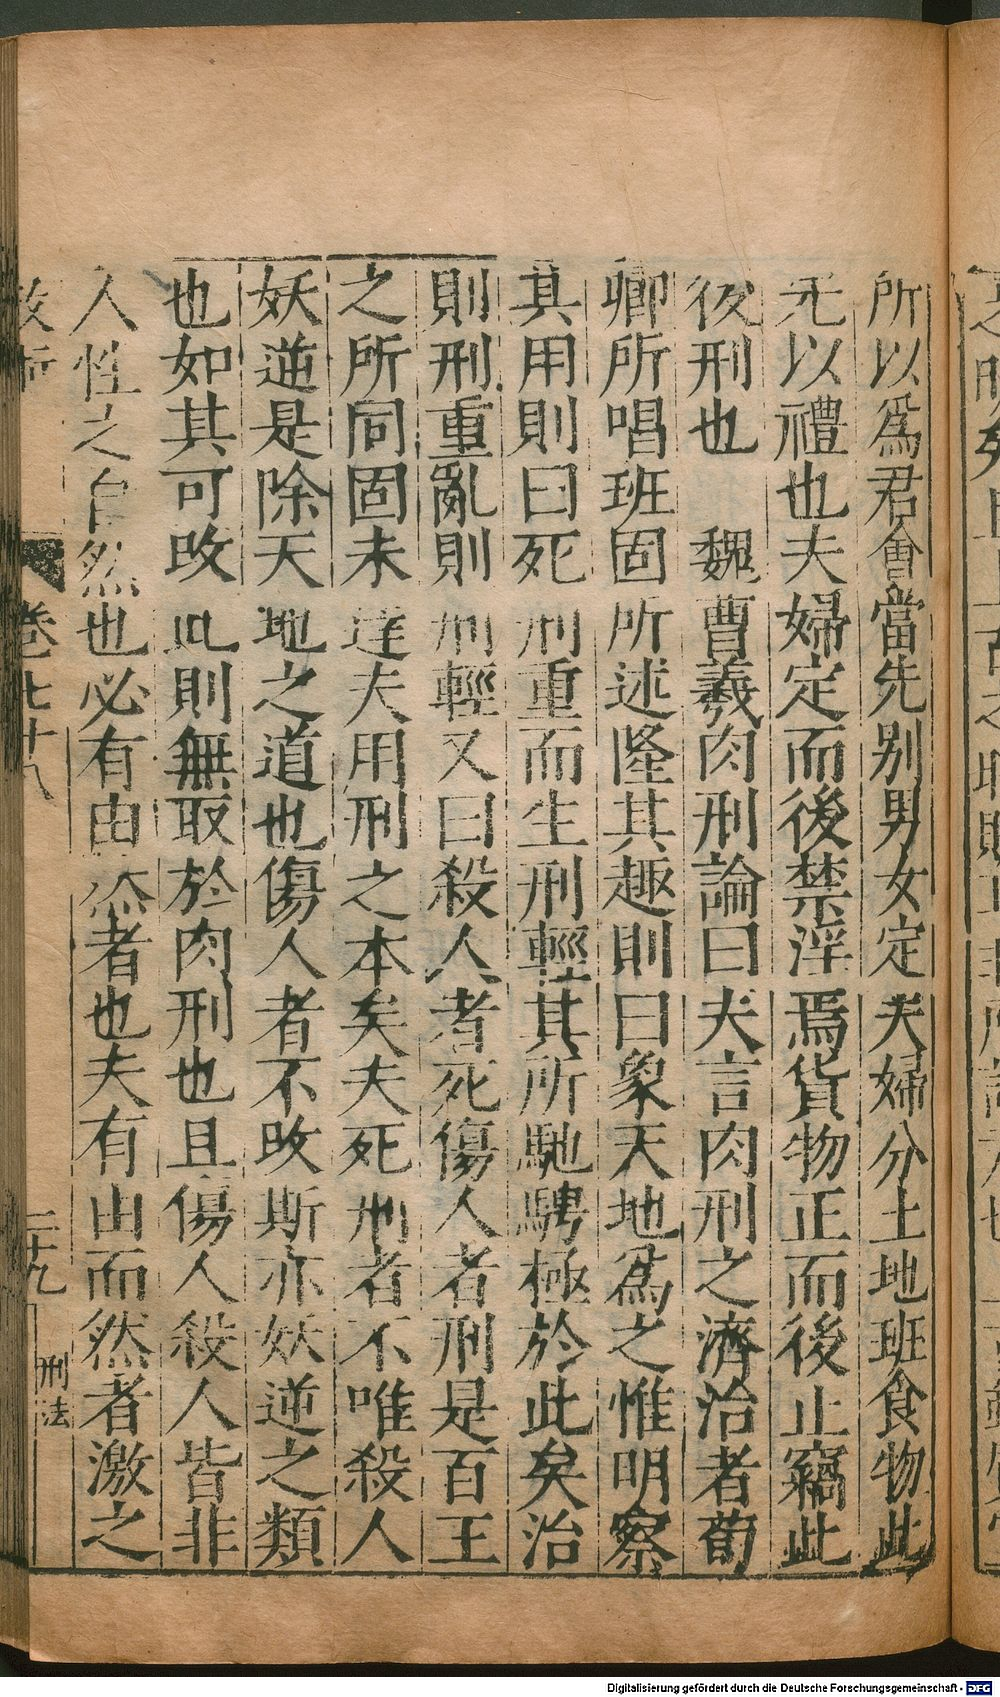 所以爲君會當先别男女定夫婦分土地班食物此
先以禮也夫婦定而後禁淫焉貨物正而後止竊此
後刑也 魏曹羲肉刑論曰夫言肉刑之濟治者荀
卿所唱班固所述隆其趣則曰象天地爲之惟明察
其用則曰死刑重而生刑輕其所馳騁極於此矣治
則刑重亂則刑輕又曰殺人者死傷人者刑是百王
之所同固未達夫用刑之本矣夫死刑者不唯殺人
妖逆是除天地之道也傷人者不改斯亦妖逆之類
也如其可改此則無取於肉刑也且傷人殺人皆非
人性之自然也必有由然者也夫有由而然者激之
卷七十八
二十九
刑法
Digitalisierung gefördert durch die Deutsche Forschungsgemeinschaft - DFG